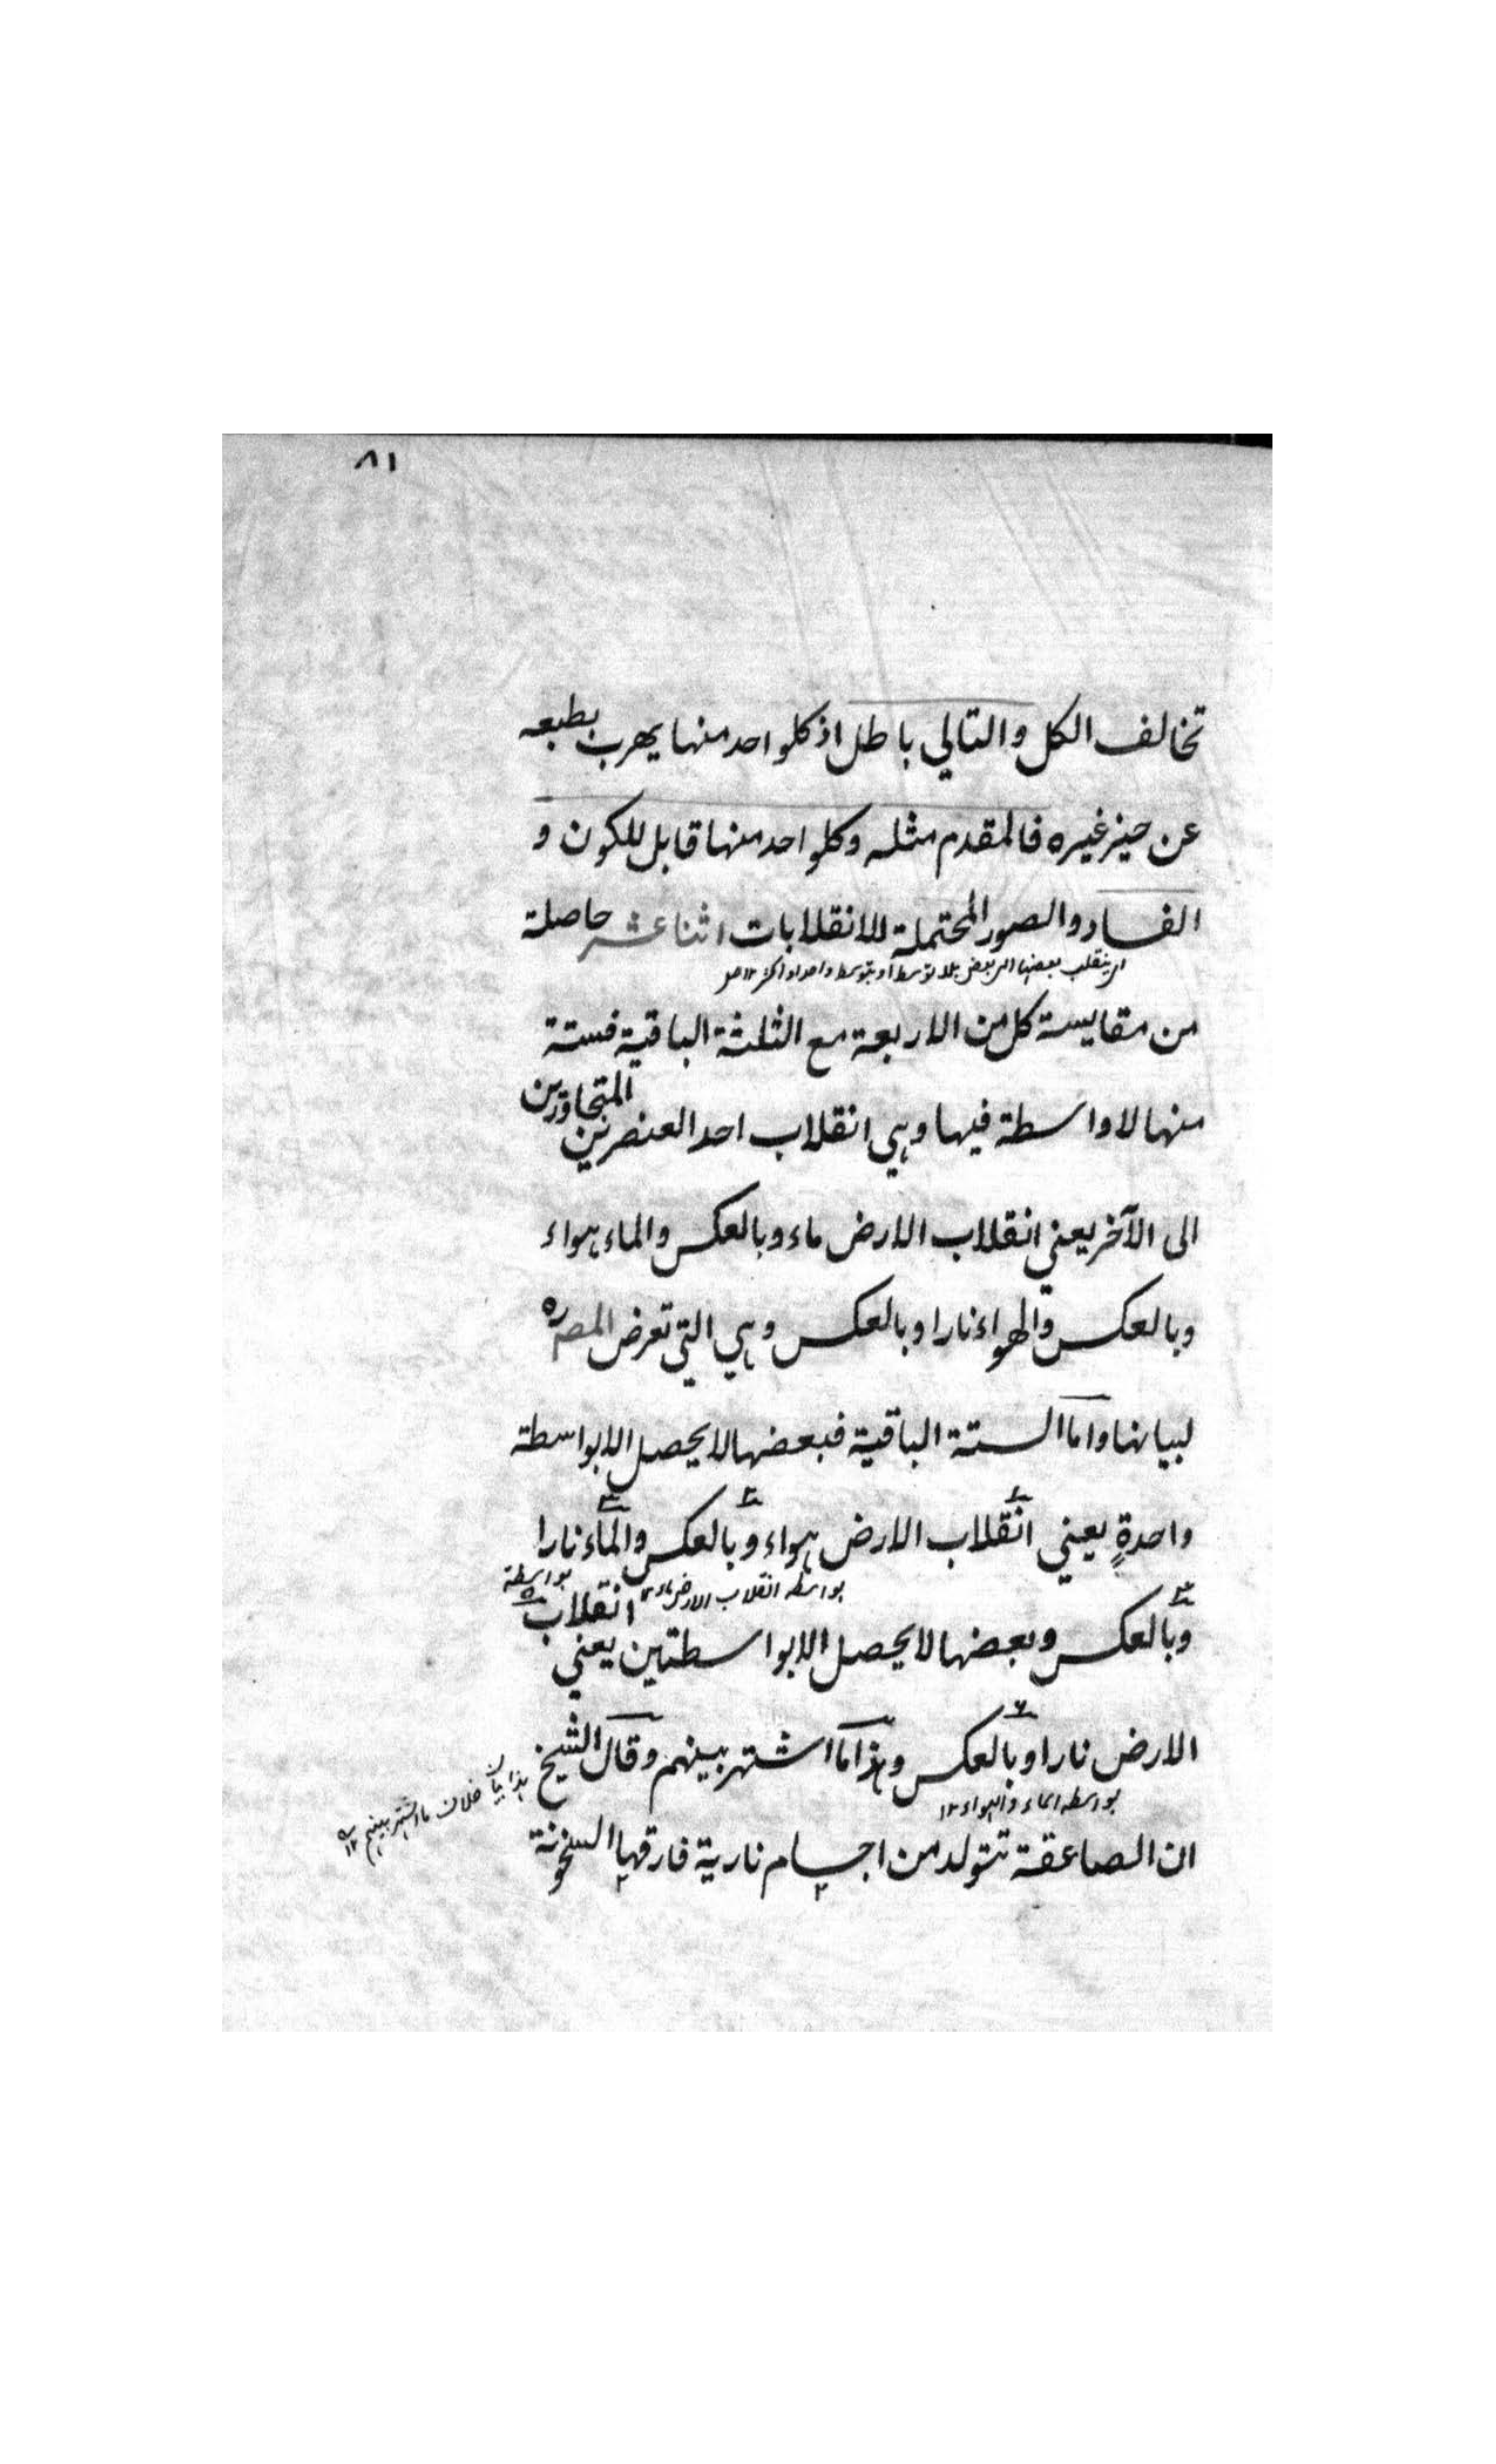 ٨١
تخالف الكل والتالي باطل اذ كلواحد منها يهرب بطبعه
عن حيز غيره فالمقدم مثله وكلواحد منها قابل للكون و
الفساد والصور المحتملة للانقلابات اثنا عشر حاصلة
اى ينقلب بعضها الى بعض بلا توسط او بتوسط واحد او اكثر ١٢
من مقايسة كل من الاربعة مع الثلثة الباقية فستة
منها لا واسطة فيها وهي انقلاب احد العنصرين المتجاورين
الى الآخر يعني انقلاب الارض ماء وبالعكس والماء هواء
وبالعكس والهواء نارا وبالعكس وهي التي تعرض المصره
لبيانها واما الستة الباقية فبعضها لا يحصل الا بواسطة
واحدةٍ يعني انقلاب الارض هواء وبالعكس والماء نارا
بواسطه انقلاب الارض ماء ١٢ بواسطة
وبالعكس وبعضها لا يحصل الا بواسطتين يعني انقلاب
الارض نارا وبالعكس وهذا ما اشتهر بينهم وقال الشيخ
بواسطه الماء والهواء ١٢
هذا بيان خلاف ما اشتهر بينهم ١٢
ان الصاعقة تتولد من اجسام نارية فارقها السخونة